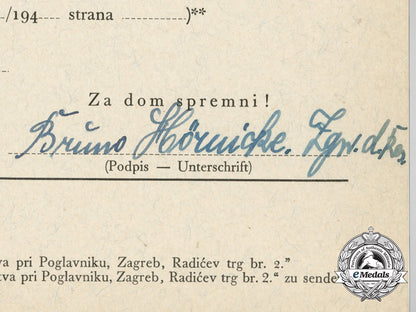 /194 strana )**
Za dom spremni!
Bruno Hörnicke. Zgw. d. Res.
(Podpis — Unterschrift)
va pri Poglavniku, Zagreb, Radićev trg br. 2.”
tva pri Poglavniku, Zagreb, Radićev trg br. 2.“ zu sende
eMedals